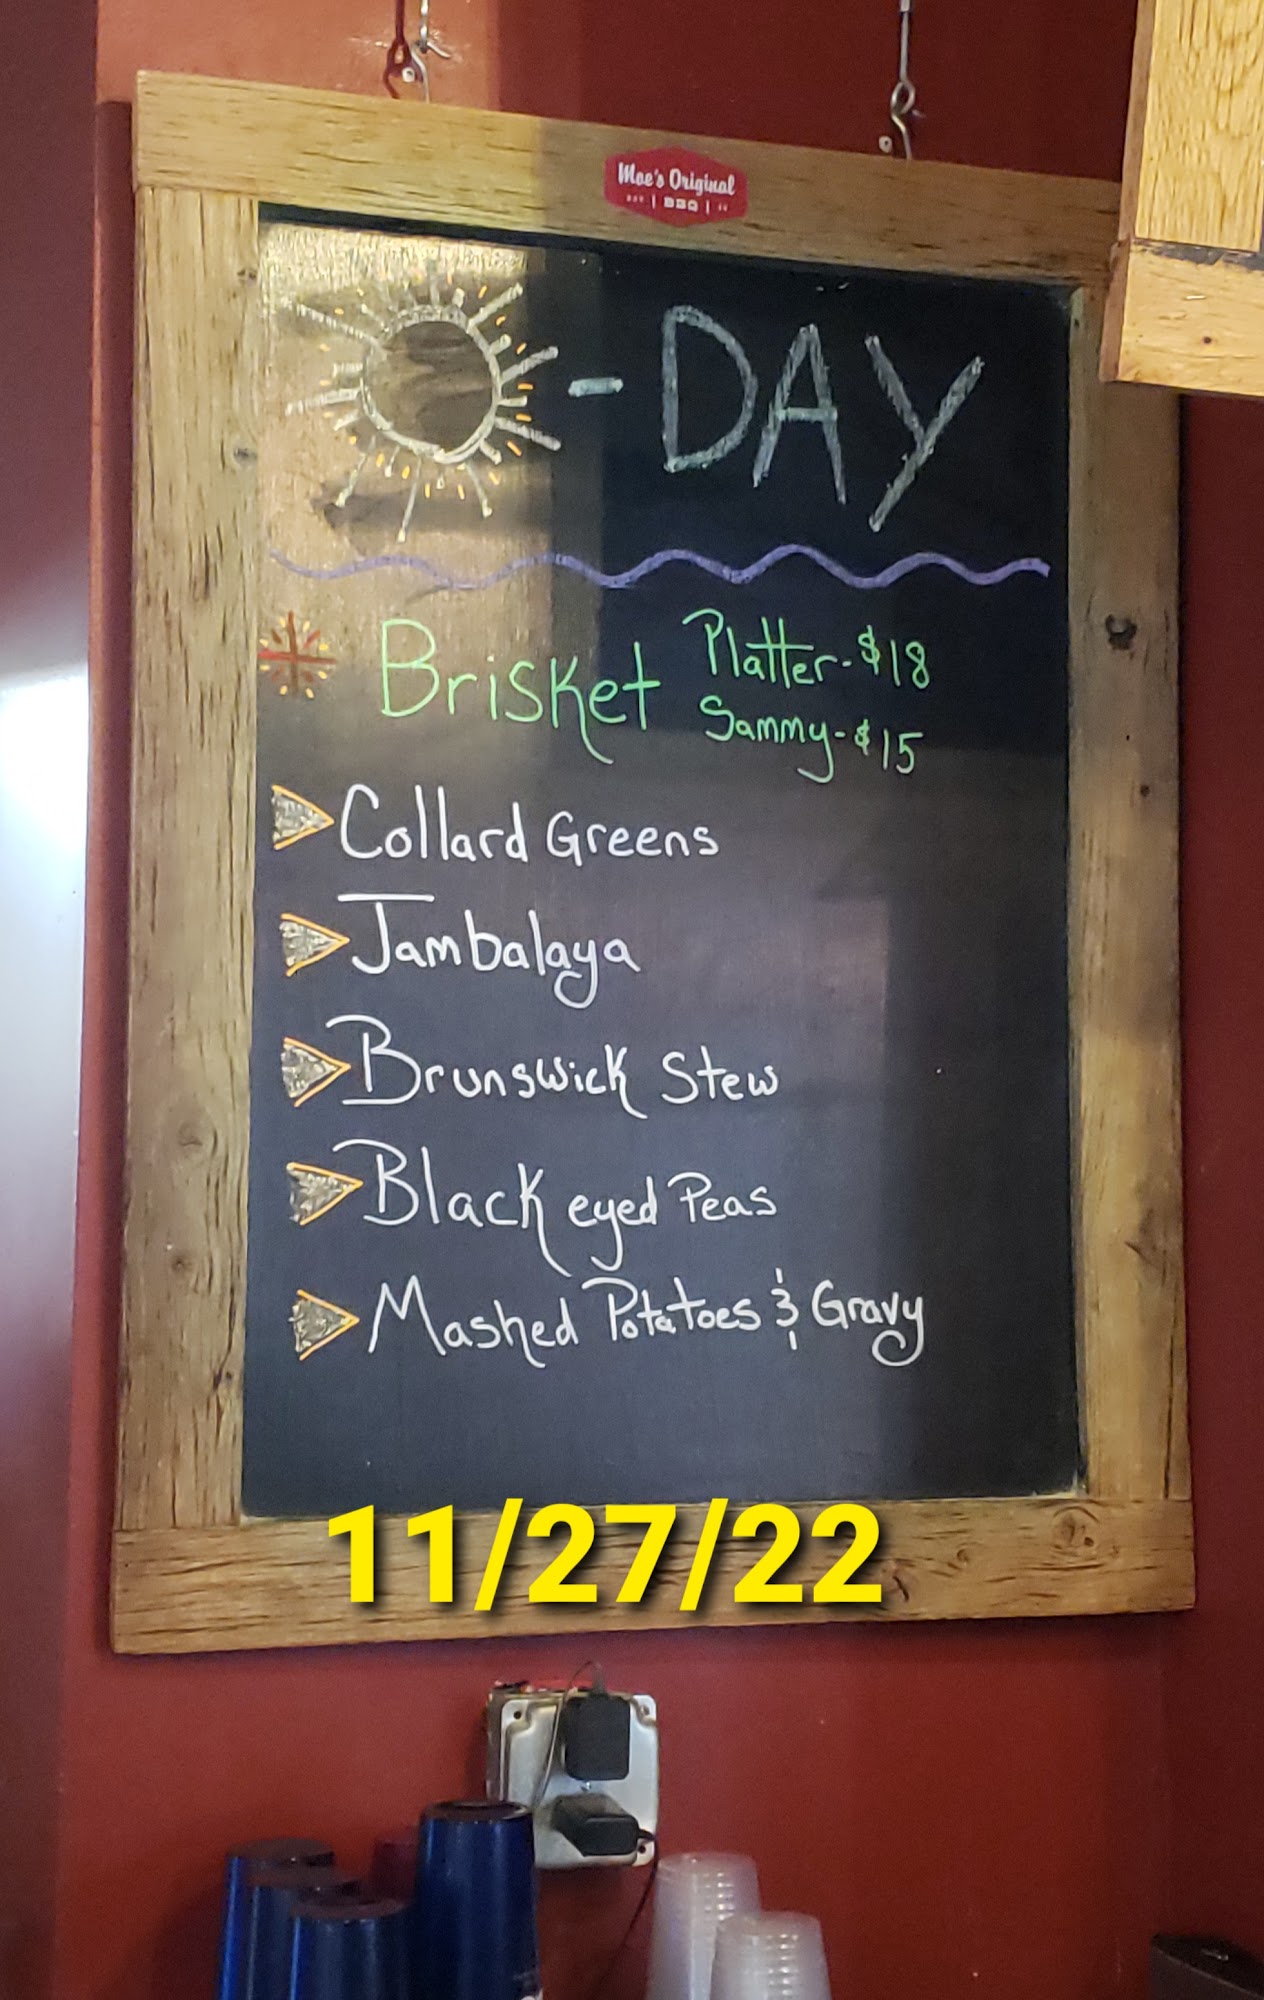 Moe's Original
BBQ
-DAY
Brisket Platter-$18
Sammy-$15
Collard Greens
Jambalaya
Brunswick Stew
Black eyed Peas
Mashed Potatoes & Gravy
11/27/22